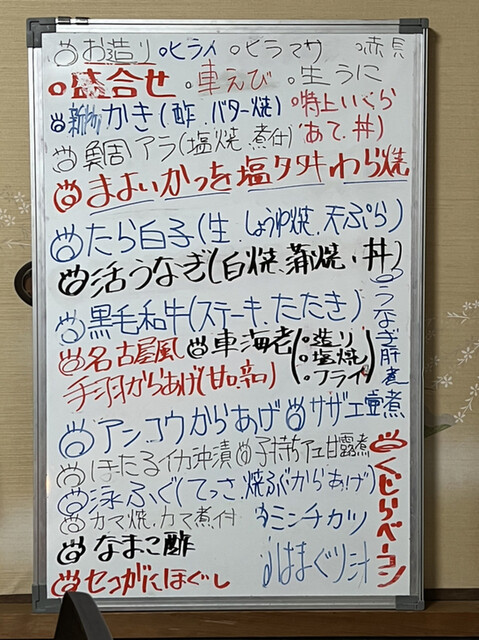 お造り ヒライ ヒラマサ 赤貝
盛合せ 車えび 生うに
新物かき(酢.バター焼) 特上いくら
鯛アラ(塩焼.煮付) (あて.丼)
まよいがつを塩タタキわら焼
たら白子(生.しょうゆ焼.天ぷら)
活うなぎ(白焼.蒲焼.丼)
うなぎ肝煮
黒毛和牛(ステーキ.たたき)
名古屋風
手羽からあげ(甘辛)
車海老(造り
塩焼
フライ)
アンコウからあげ サザエ壷煮
ほたるイカ沖漬 子持アユ甘露煮
泳ふぐ(てっさ.焼ふぐからあげ)
カマ焼.カマ煮付 ミンチカツ
なまこ酢 はまぐり汁
セコがにほぐし
くじらベーコン